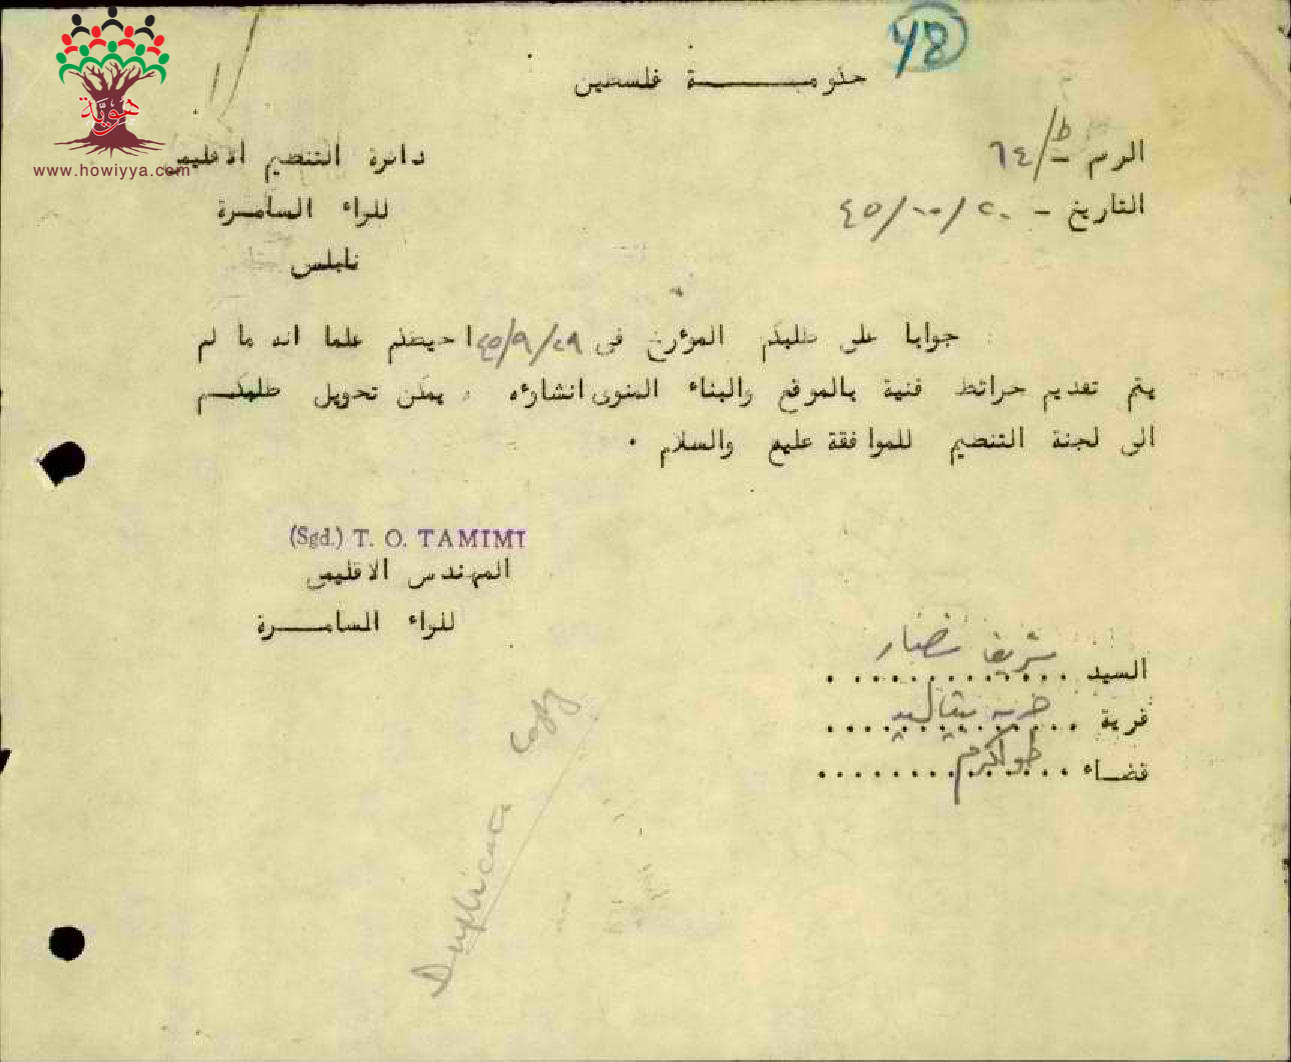 هوية
www.howiyya.com
48
حكومـــــــة فلسطين
الرقم - ط/٦٤
دائرة التنظيم الاقليمي
التاريخ - ٢٠/١٠/٤٥
للواء السامـرة
نابلس
جوابا على طلبكم المؤرخ في ٢٩/٩/٤٥ احيطكم علما انه ما لم
يتم تقديم خرائط فنية بالموقع والبناء المنوى انشاؤه ، يمكن تحويل طلبكـم
الى لجنة التنظيم للموافقة عليه والسلام .
(Sgd.) T. O. TAMIMI
المهندس الاقليمي
للواء السامـــرة
السيد شريف نصار
قرية خربه
قضاء طولكرم
Duplicate copy